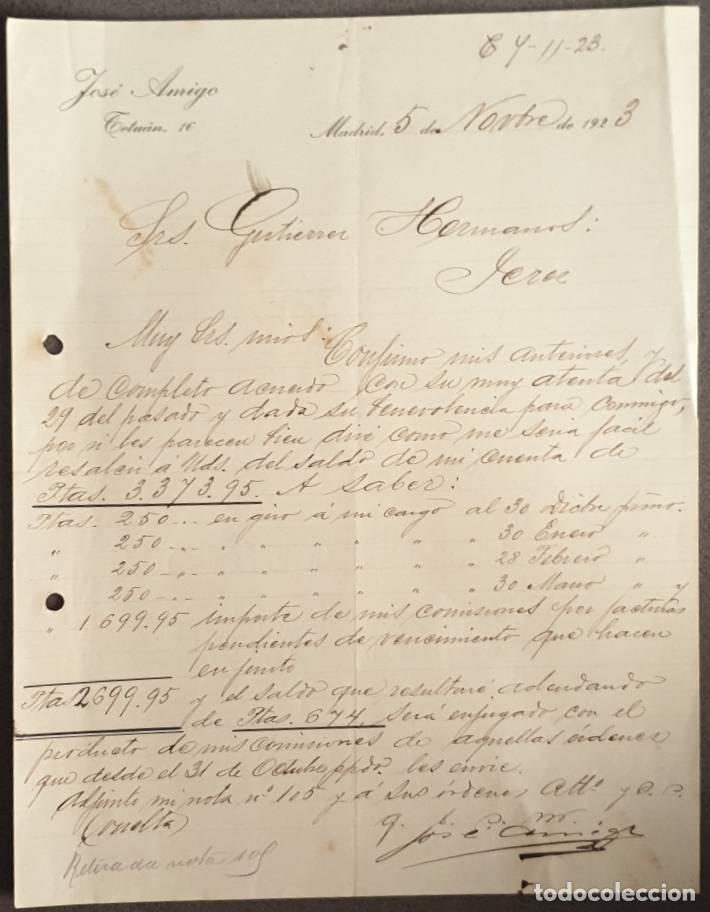 C 7-11-23.
José Amigo
Tetuán, 16
Madrid, 5 de Novbre de 1923
Srs. Gutierrez Hermanos:
Jerez
Muy Srs. mios: Confirmo mis anteriores, y
de completo acuerdo con su muy atenta del
29 del pasado y dada su benevolencia para conmigo,
por si les parecen bien diré como me seria facil
á Uds. del saldo de mi cuenta de
Ptas. 3.373.95. A saber:
Ptas. 250... en giro á mi cargo al 30 Dicbre
" 250 " " " " " 30 Enero "
" 250 " " " " " 28 Febrero "
" 250 " " " " " 30 Marzo " y
" 1699.95 importe de mis comisiones por facturas
pendientes de vencimiento que hacen
en junto
Ptas 2699.95 y el saldo que resultare adeudando
de Ptas. 674 será enjugado con el
producto de mis comisiones de aquellas ordenes
que desde el 31 de Octubre ppdo. les envie.
Adjunto mi nota nº 105 y á sus órdenes Attº y
(vuelta)
José Amigo
Retirada nota
todocoleccion.net